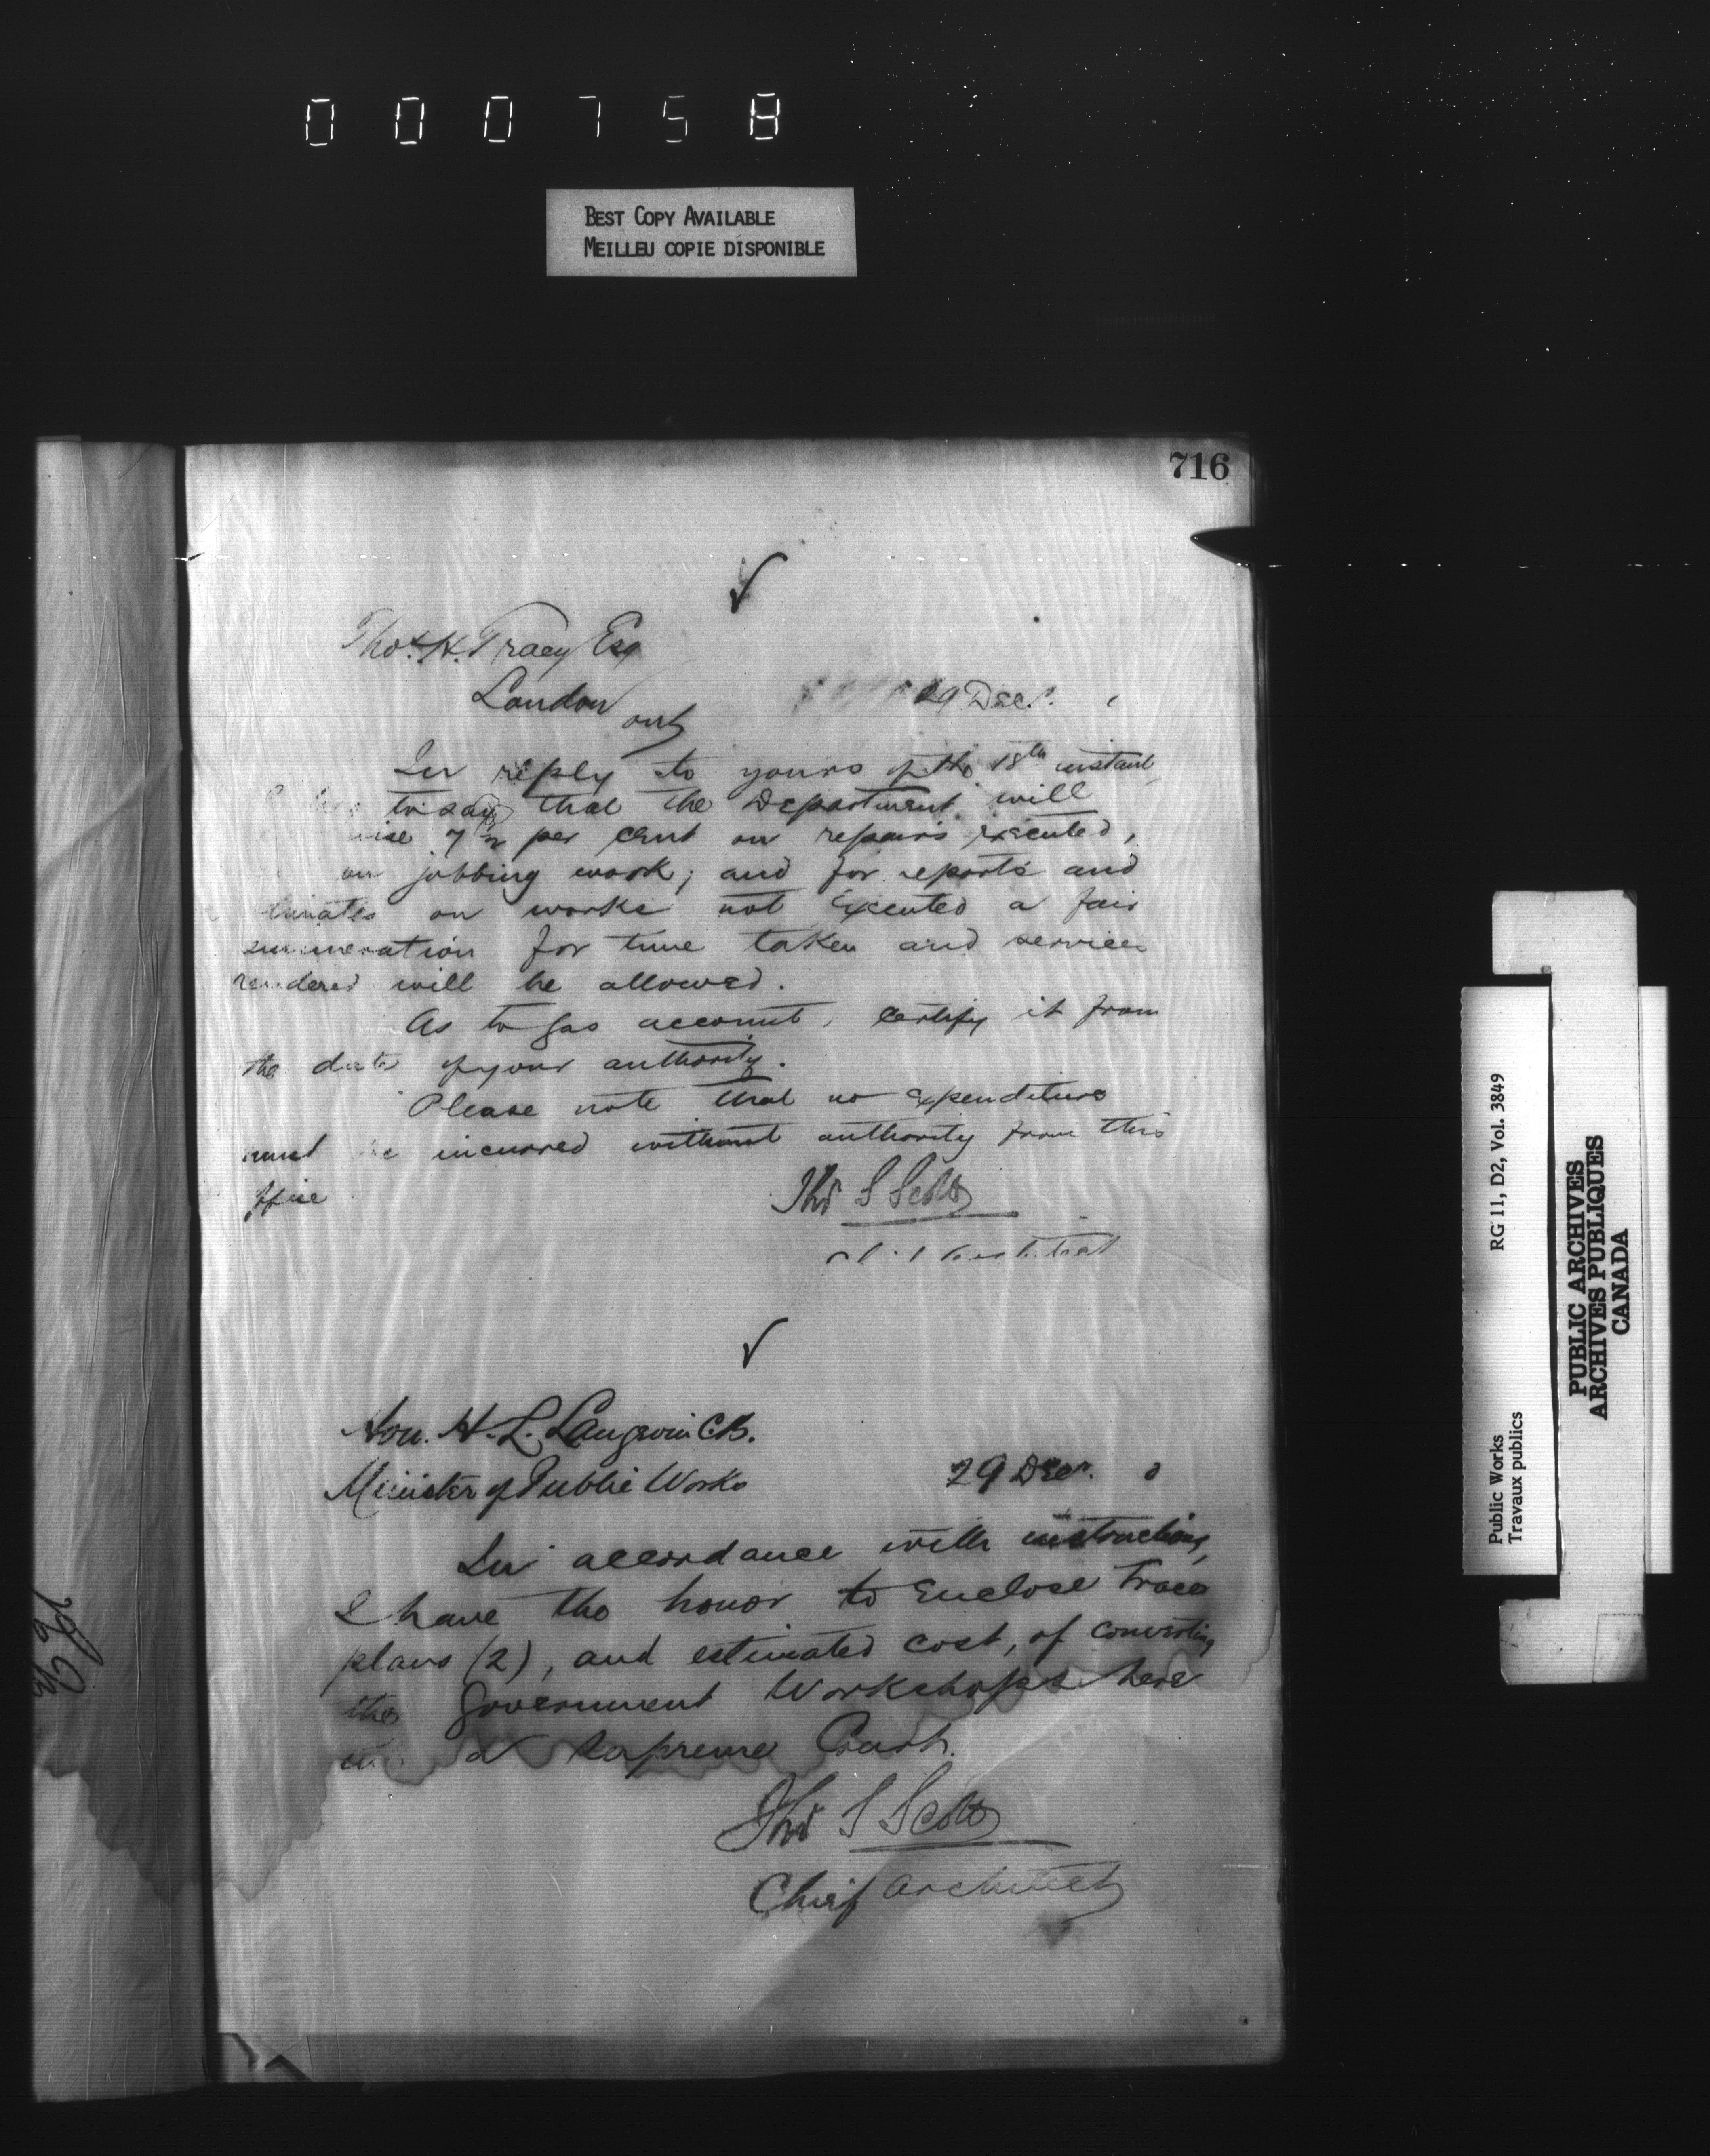 000758
BEST COPY AVAILABLE
MEILLEU COPIE DISPONIBLE
716
Thos. H. Tracy Esq
London
Ont
29 Decr.
In reply to yours of the 18th instant
to say that the Department will
7 1/2 per cent on repairs executed,
on jobbing work; and for reports and
on works not executed a fair
remuneration for time taken and services
rendered will be allowed.
As to gas account, certify it from
the date of your authority.
Please note that no expenditure
must be incurred without authority from this
office
Thos S Scott
Hon. H. L. Langevin CB.
Minister of Public Works
29 Decr.
In accordance with instructions,
I have the honor to enclose trace
plans (2), and estimated cost, of converting
the Government Workshops here
a Supreme Court.
Thos S Scott
Chief Architect
Public Works
Travaux publics
RG 11, D2, Vol. 3849
PUBLIC ARCHIVES
ARCHIVES PUBLIQUES
CANADA